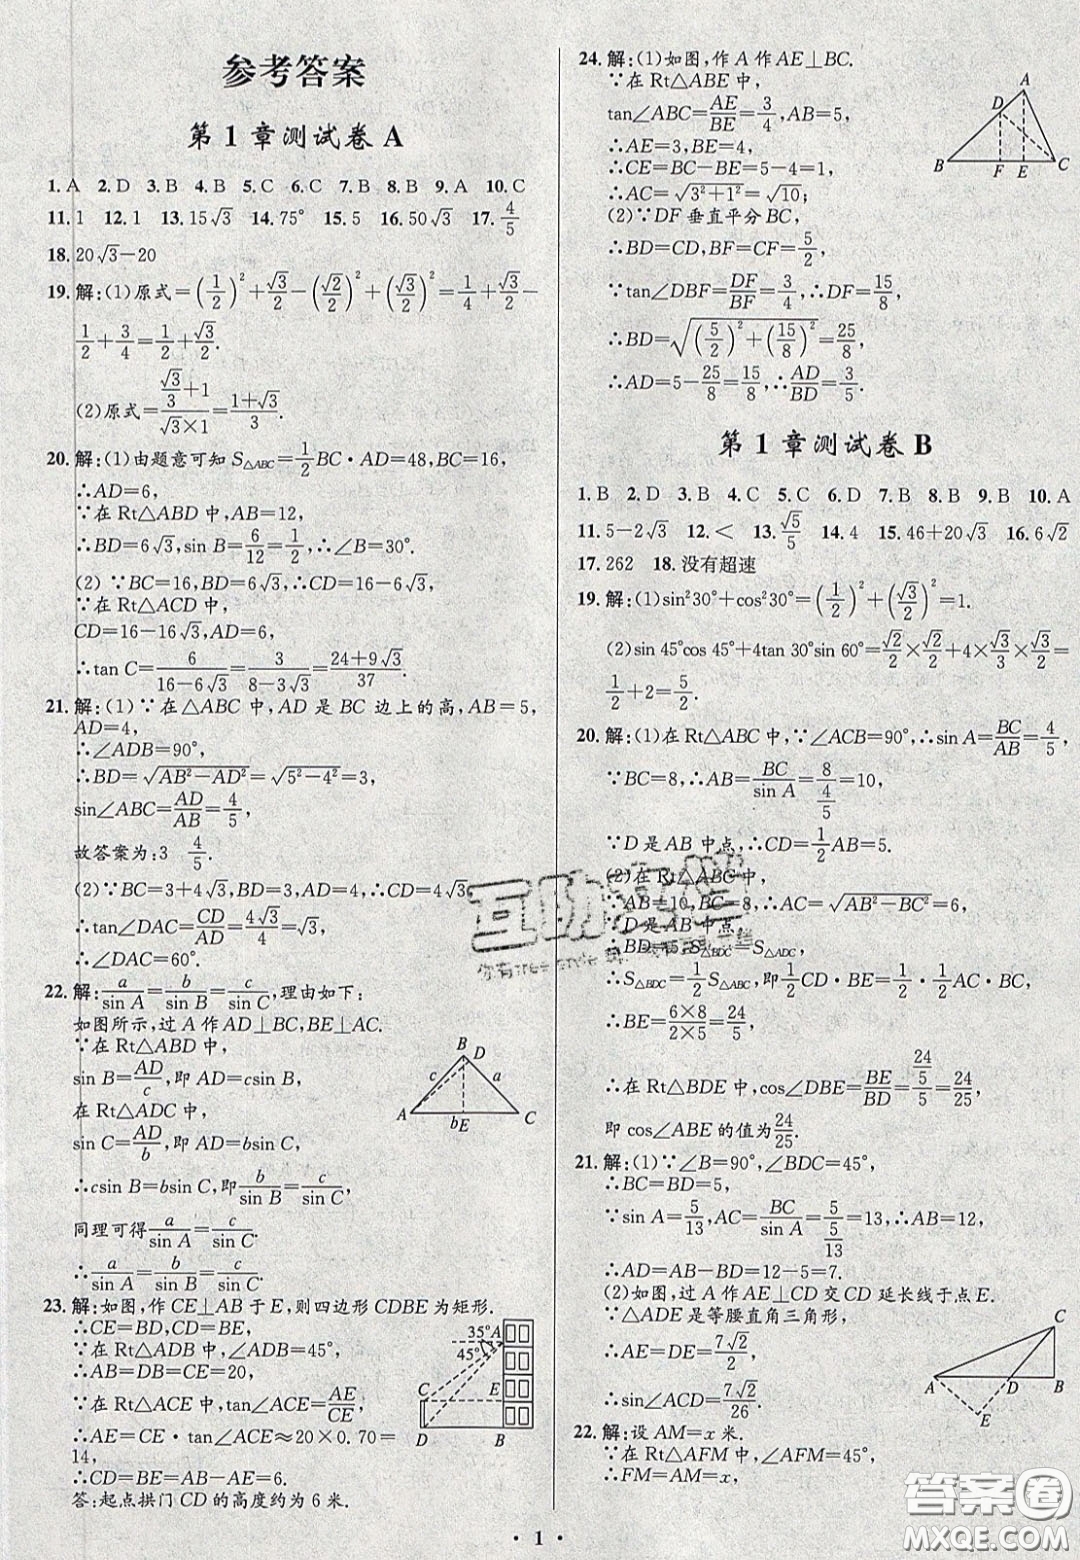 参考答案
第1章测试卷A
1.A 2.D 3.B 4.B 5.C 6.C 7.B 8.B 9.A 10.C
11.1 12.1 13.15√3 14.75° 15.5 16.50√3 17.4/5
18.20√3-20
19.解:(1)原式=(1/2)²+√3/2-(√2/2)²+(√3/2)²=1/4+√3/2-
1/2+3/4=1/2+√3/2.
(2)原式=(√3/3+1)/(√3×1)=(1+√3)/3.
20.解:(1)由题意可知S△ABC=1/2BC·AD=48,BC=16,
∴AD=6,
∵在Rt△ABD中,AB=12,
∴BD=6√3,sin B=6/12=1/2,∴∠B=30°.
(2)∵BC=16,BD=6√3,
∵在Rt△ACD中,
CD=16-16√3,AD=6,
∴tan C=6/(16-6√3)=3/(8-3√3)=(24+9√3)/37.
21.解:(1)∵在△ABC中,AD是BC边上的高,AB=5,
AD=4,
∴∠ADB=90°,
∴BD=√(AB²-AD²)=√(5²-4²)=3,
sin∠ABC=AD/AB=4/5,
故答案为:3 4/5.
(2)∵BC=3+4√3,BD=3,∴CD=4√3
∴tan∠DAC=CD/AD=4√3/4=√3,
∴∠DAC=60°.
22.解:a/sin A=b/sin B=c/sin C,理由如下:
如图所示,过A作AD⊥BC,BE⊥AC.
∵在Rt△ABD中,
sin B=AD/c,即AD=csin B,
在Rt△ADC中,
sin C=AD/b,即AD=bsin C,
∴csin B=bsin C,即b/sin B=c/sin C,
同理可得a/sin A=c/sin C,
∴a/sin A=b/sin B=c/sin C.
B D c a A bE C
23.解:如图,作CE⊥AB于E,则四边形CDBE为矩形.
∴CE=BD,CD=BE,
∵在Rt△ADB中,∠ADB=45°,
∴AB=DB=CE=20,
∵在Rt△ACE中,tan∠ACE=AE/CE,
∴AE=CE·tan∠ACE≈20×0.70=
14,
∴CD=BE=AB-AE=6.
答:起点拱门CD的高度约为6米.
35° A 45° C E D B
24.解:(1)如图,作A作AE⊥BC.
∵在Rt△ABE中,
tan∠ABC=AE/BE=3/4,AB=5,
∴AE=3,BE=4,
∴CE=BC-BE=5-4=1,
∴AC=√(3²+1²)=√10;
(2)∵DF垂直平分BC,
∴BD=CD,BF=CF=5/2,
∵tan∠DBF=DF/BF=3/4,∴DF=15/8,
∴BD=√((5/2)²+(15/8)²)=25/8,
∴AD=5-25/8=15/8,∴AD/BD=3/5.
A D B F E C
第1章测试卷B
1.B 2.D 3.B 4.C 5.C 6.D 7.B 8.B 9.B 10.A
11.5-2√3 12.< 13.√5/5 14.4 15.46+20√3 16.6√2
17.262 18.没有超速
19.解:(1)sin²30°+cos²30°=(1/2)²+(√3/2)²=1.
(2)sin 45°cos 45°+4tan 30°sin 60°=√2/2×√2/2+4×√3/3×√3/2=
1/2+2=5/2.
20.解:(1)在Rt△ABC中,∵∠ACB=90°,∴sin A=BC/AB=4/5,
∵BC=8,∴AB=BC/sin A=8/(4/5)=10,
∵D是AB中点,∴CD=1/2AB=5.
(2)在Rt△ABC中,
∵AB=10,BC=8,∴AC=√(AB²-BC²)=6,
∵D是AB中点,
∴BD=5,S△BDC=S△ADC,
∴S△BDC=1/2S△ABC,即1/2CD·BE=1/2·1/2AC·BC,
∴BE=(6×8)/(2×5)=24/5,
∴在Rt△BDE中,cos∠DBE=BE/BD=(24/5)/5=24/25,
即cos∠ABE的值为24/25.
21.解:(1)∵∠B=90°,∠BDC=45°,
∴BC=BD=5,
∵sin A=5/13,AC=BC/sin A=5/(5/13)=13,∴AB=12,
∴AD=AB-BD=12-5=7.
(2)如图,过A作AE⊥CD交CD延长线于点E.
∵△ADE是等腰直角三角形,
∴AE=DE=7√2/2,
∴sin∠ACD=7√2/26.
C A D B E
22.解:设AM=x米.
∵在Rt△AFM中,∠AFM=45°,
∴FM=AM=x,
互助文档
答案圈
MXQE.COM
·1·